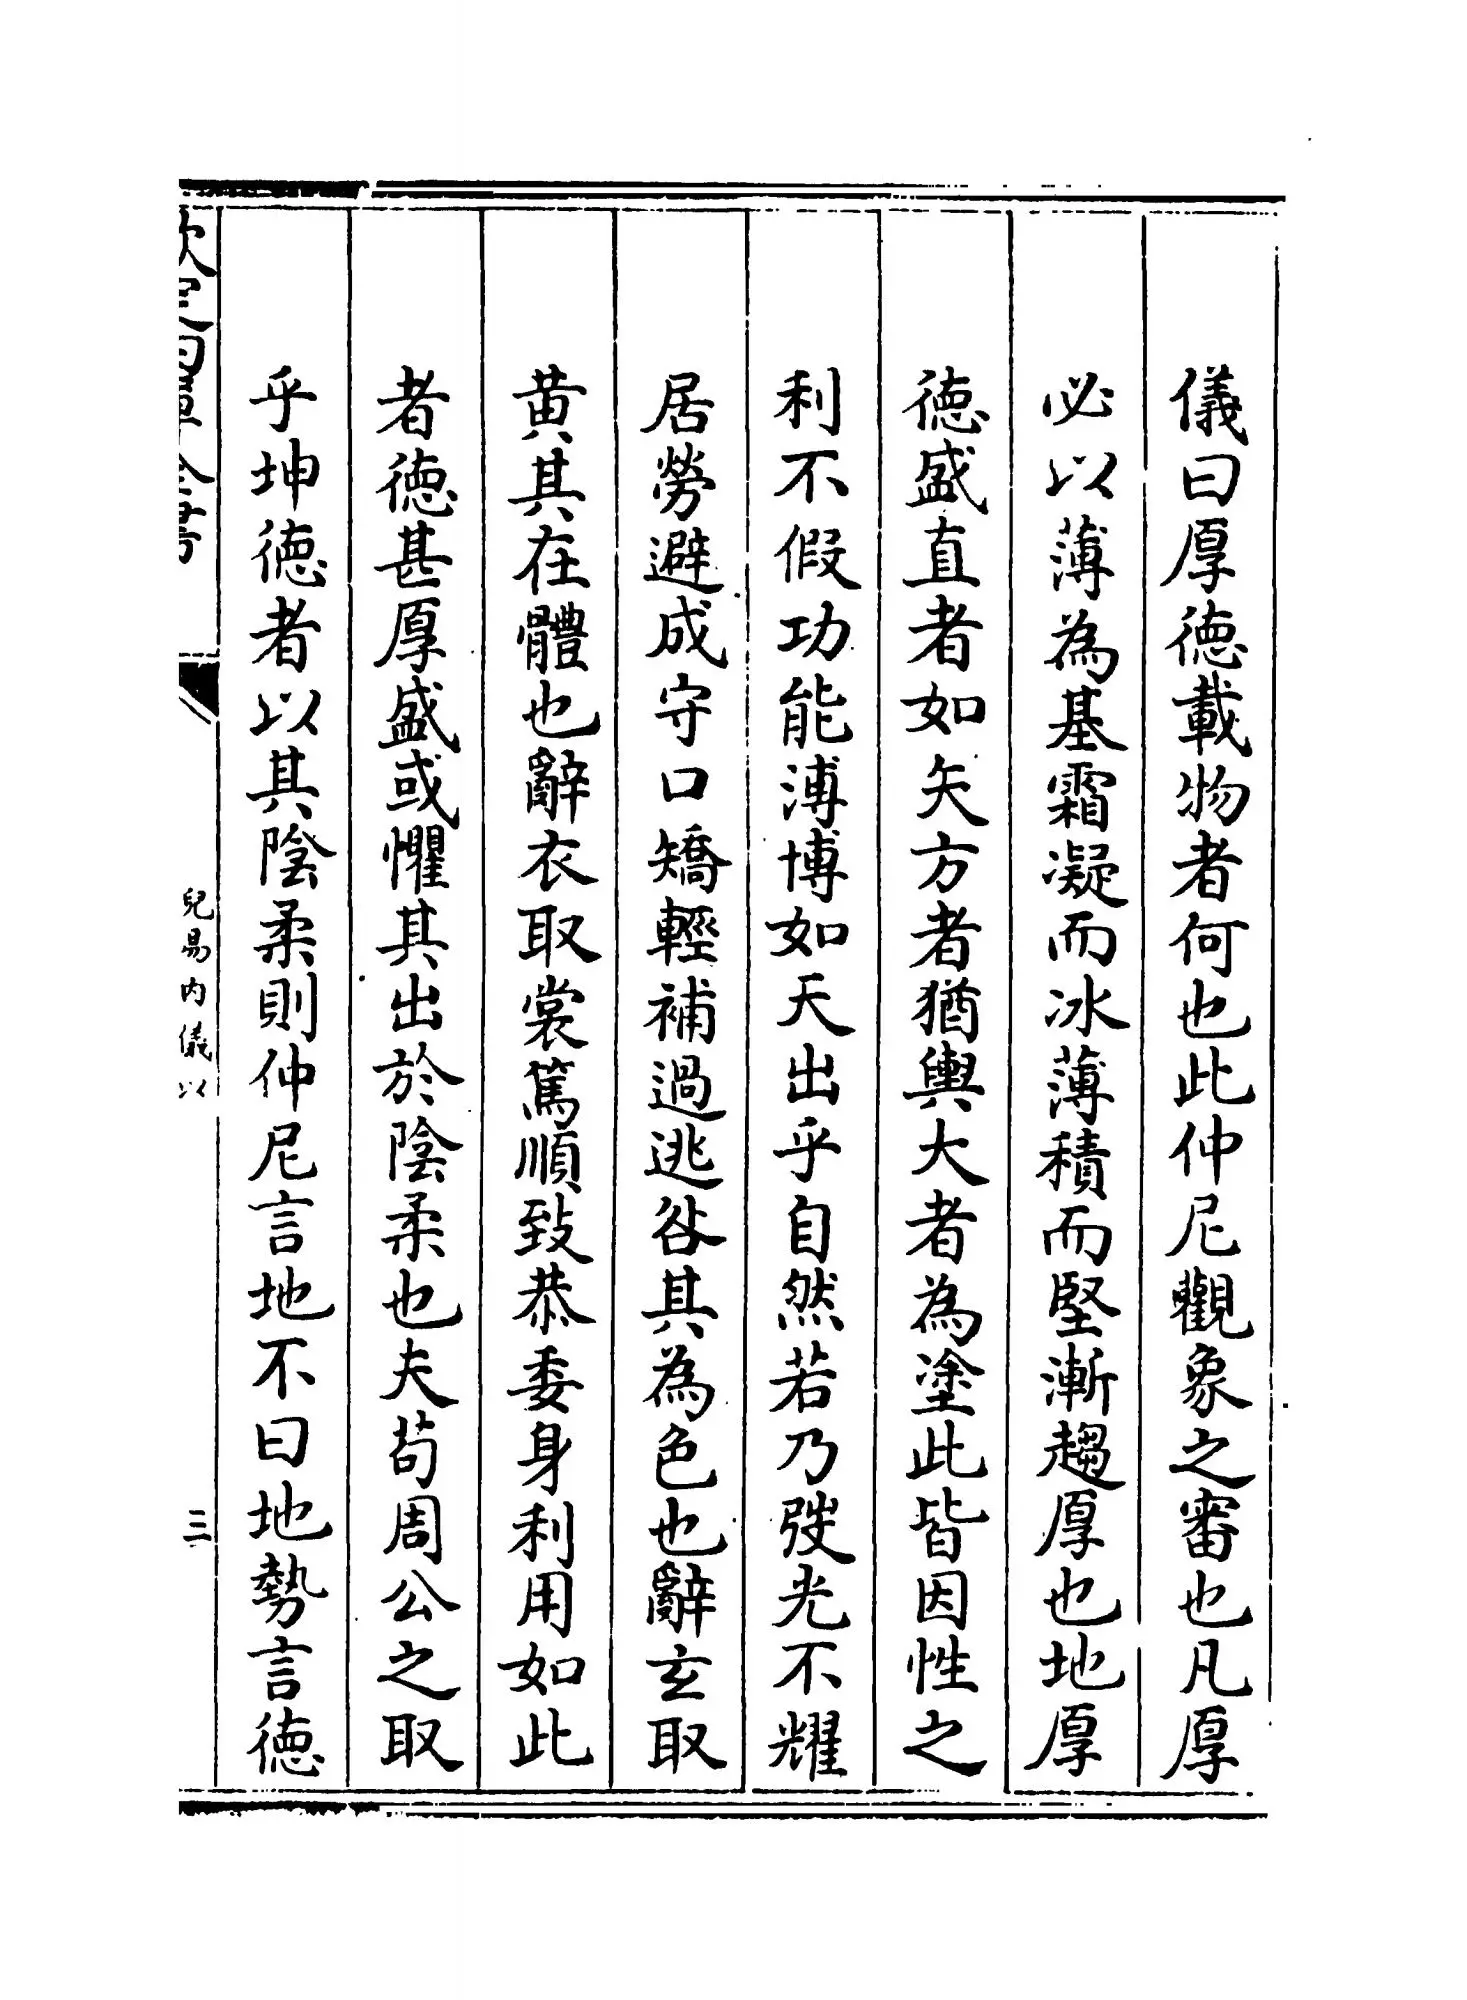 儀曰厚徳載物者何也此仲尼觀象之審也凡厚
必以薄為基霜凝而冰薄積而堅漸趨厚也地厚
徳盛直者如矢方者猶輿大者為塗此皆因性之
利不假功能溥博如天出乎自然若乃弢光不耀
居勞避成守口矯輕補過逃咎其為色也辭玄取
黄其在體也辭衣取裳篤順致恭委身利用如此
者徳甚厚盛或懼其出於陰柔也夫苟周公之取
乎坤徳者以其陰柔則仲尼言地不曰地勢言徳
欽定四庫全書
兒易内儀以
三